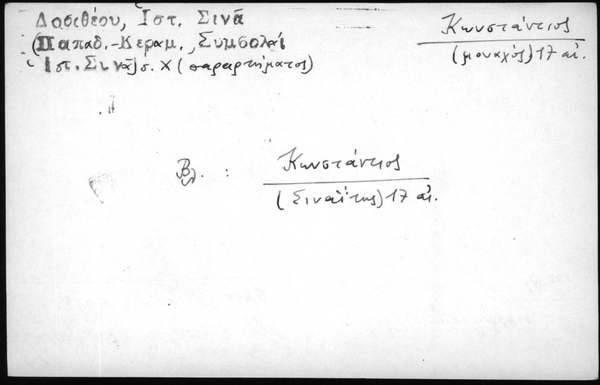 Δοσιθέου, Ιστ. Σινᾶ
(Παπαδ.-Κεραμ., Συμβολαί
Ιστ. Σινᾶ) σ. Χ (παραρτήματος)
Κωνστάντιος
(μοναχός) 17 αἰ.
Βλ. :
Κωνστάντιος
(Σιναΐτης) 17 αἰ.